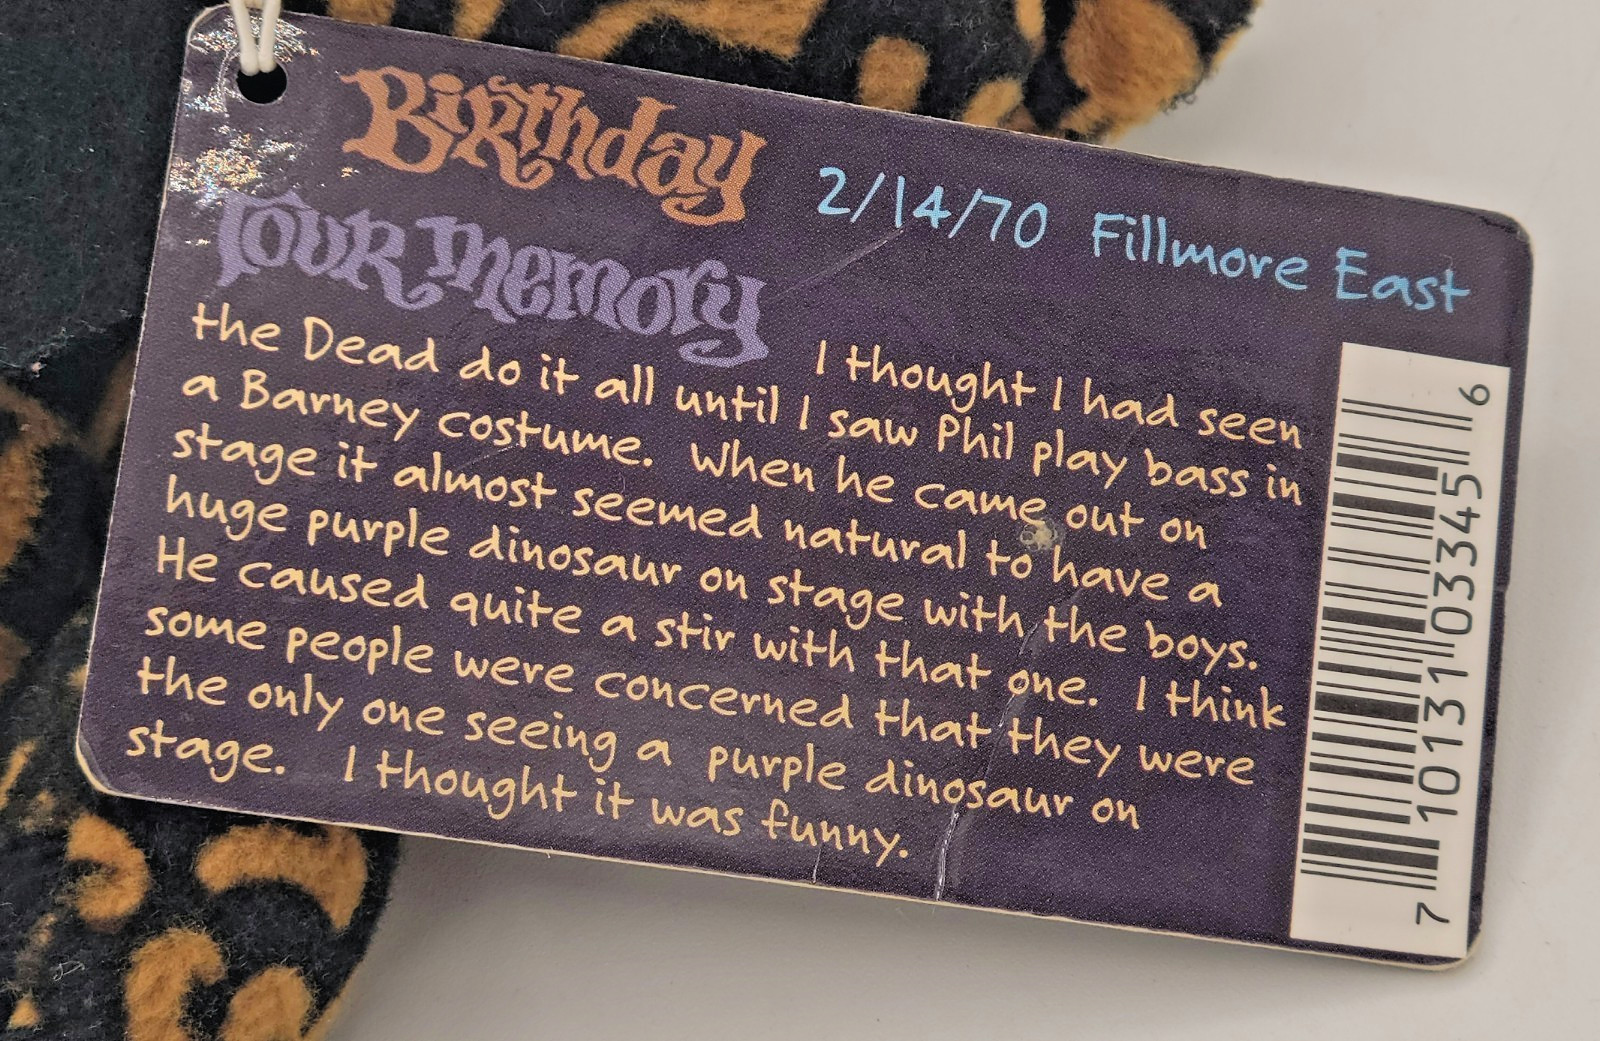 Birthday
2/14/70 Fillmore East
Tour Memory
I thought I had seen
the Dead do it all until I saw Phil play bass in
a Barney costume. When he came out on
stage it almost seemed natural to have a
huge purple dinosaur on stage with the boys.
He caused quite a stir with that one. I think
some people were concerned that they were
the only one seeing a purple dinosaur on
stage. I thought it was funny.
7 10131 03345 6